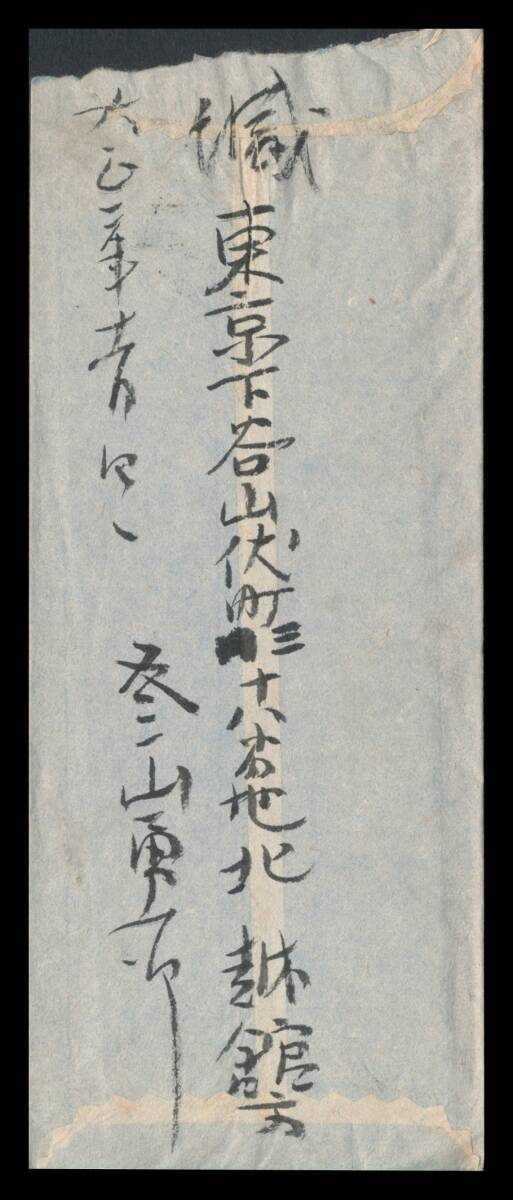 緘
東京下谷山伏町三十八番地北越館方
大正二年十一月四日
山勇一郎